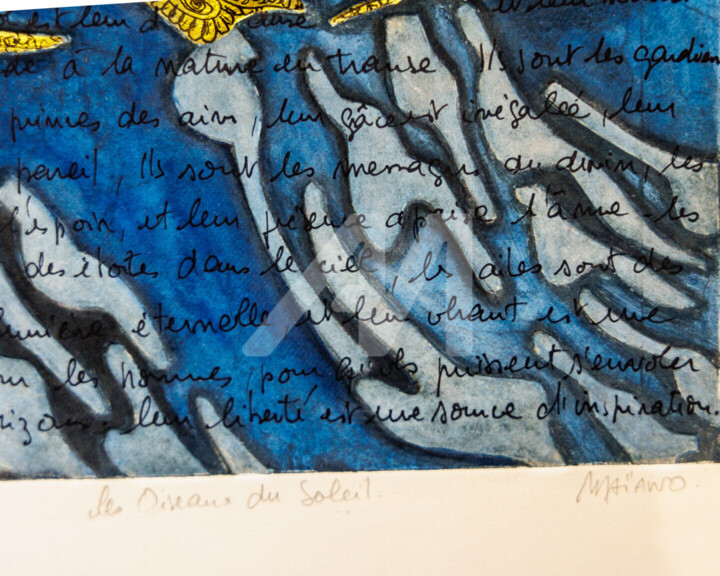 est leur
de à la nature en transe Ils sont les gardiens
princes des airs, leur grâce est inégalée, leur
pareil, Ils sont les messagers du divin, les
l'espoir, et leur présence apaise l'âme les
des étoiles dans le ciel, les ailes sont des
lumière éternelle, et leur chant est une
les hommes, pour qu'ils puissent s'envoler
leur liberté est une source d'inspiration.
Les Oiseaux du Soleil. MAÏANO.